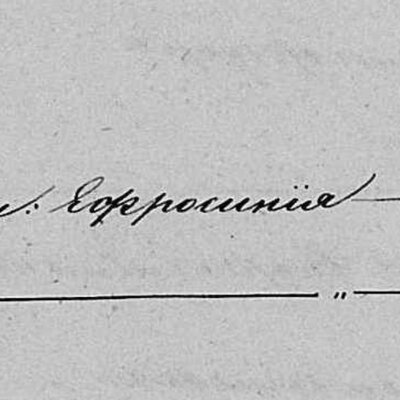 Ефросинія
"